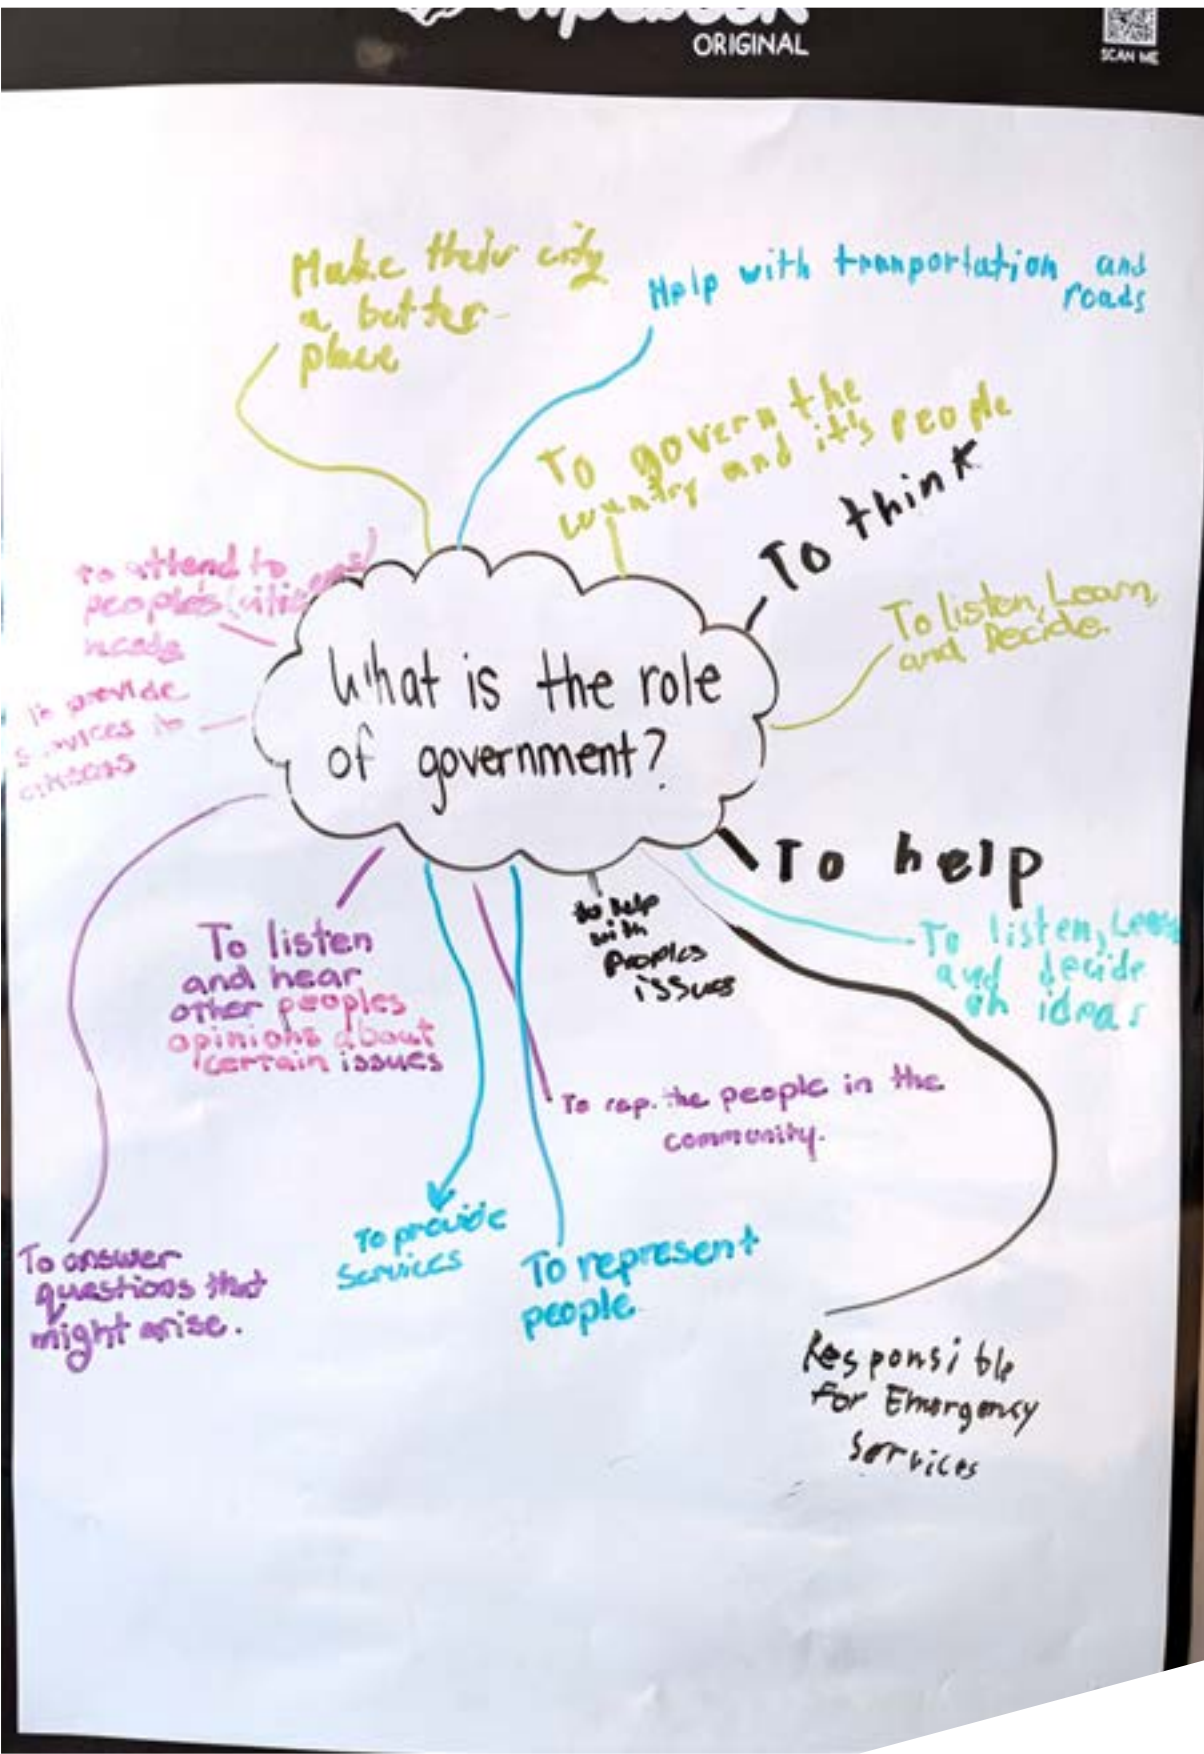 ORIGINAL
SCAN ME
Make their city
a better
place
Help with tranportation and
roads
To govern the
country and it's people
To think
To listen, Learn,
and Decide.
to attend to
people's/citizens'
needs
to provide
services to
citizens
What is the role
of government?
To help
To listen, Learn
and decide
on ideas
to help
with
Peoples
issues
To listen
and hear
other peoples
opinions about
certain issues
To rep. the people in the
community.
To answer
questions that
might arise.
To provide
Services
To represent
people
Responsible
For Emergency
Services